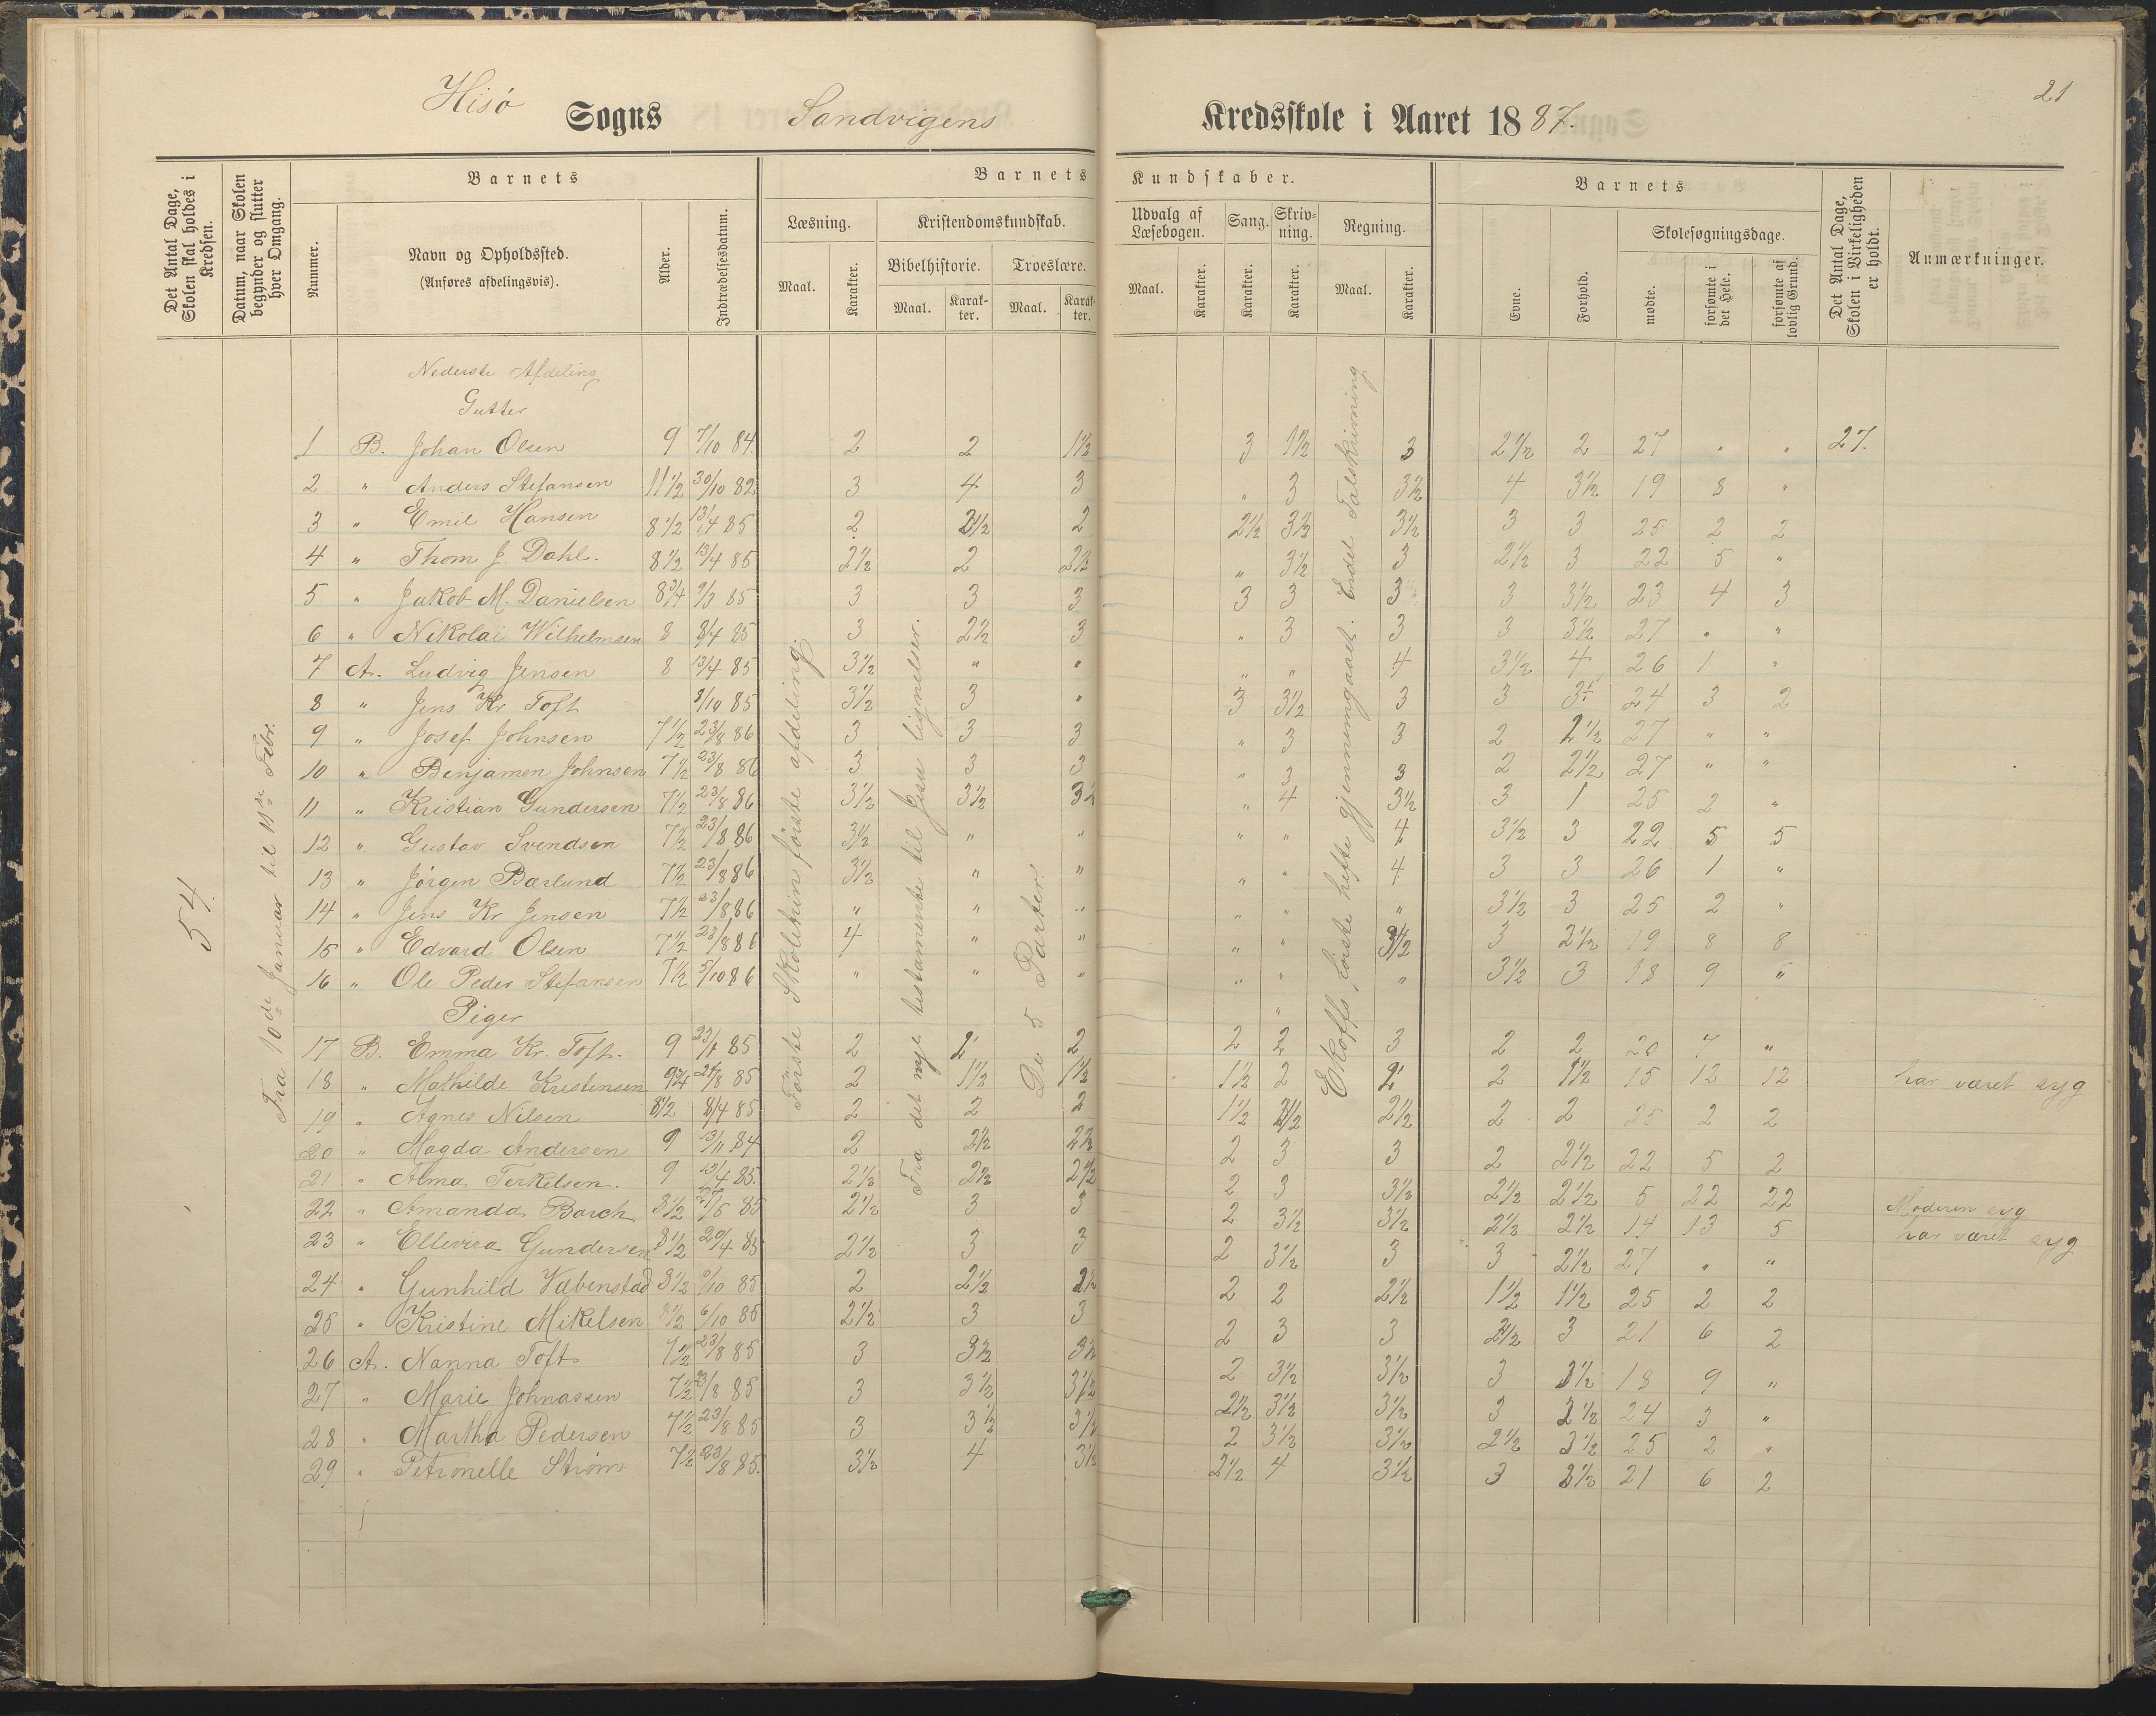 21
Hisö Sogns Sandvigens Kredsskole i Aaret 1887.
Det Antal Dage, Skolen skal holdes i Kredsen.
Datum, naar Skolen begynder og slutter hver Omgang.
Nummer.
Barnets
Navn og Opholdssted.
(Anføres afdelingsvis).
Alder.
Indtrædelsesdatum.
Barnets Kundskaber.
Læsning.
Maal.
Karakter.
Kristendomskundskab.
Bibelhistorie.
Maal.
Karakter.
Troeslære.
Maal.
Karakter.
Udvalg af Læsebogen.
Maal.
Karakter.
Sang.
Karakter.
Skrivning.
Karakter.
Regning.
Maal.
Karakter.
Barnets
Evne.
Forhold.
Skolesøgningsdage.
mødte.
forsømte i det Hele.
forsømte af lovlig Grund.
Det Antal Dage, Skolen i Virkeligheden er holdt.
Anmærkninger.
54.
Fra 10de Januar til 11te Febr.
Første Skoletrin første afdeling.
Fra det nye testamente til Jesu lignelser.
De 5 Parter.
Ekoffs første hefte gjennemgaaet. Endel Talskrivning
Nederste Afdeling
Gutter
1 B. Johan Olsen 9 7/10 84. 2 2 1½ 3 1½ 3 2½ 2 27 " " 27.
2 " Anders Stefansen 11½ 30/10 82 3 4 3 " 3 3½ 4 3½ 19 8 "
3 " Emil Hansen 8½ 13/4 85 2 2½ 2 2½ 3½ 3½ 3 3 25 2 2
4 " Thom J. Dahl. 8½ 13/4 85 2½ 2 2½ " 3½ 3 2½ 3 22 5 "
5 " Jakob M. Danielsen 8¾ 9/3 85 3 3 3 3 3 3 3 3½ 23 4 3
6 " Nikolai Wilhelmsen 8 8/4 85 3 2½ 3 " 3 3 3 3½ 27 " "
7 A. Ludvig Jensen 8 13/4 85 3½ " " " " 4 3½ 4 26 1 "
8 " Jens Kr Toft 8/10 85 3½ 3 " 3 3½ 3 3 24 3 2
9 " Josef Johnsen 7½ 23/8 86 3 3 3 " 3 3 2 2½ 27 " "
10 " Benjamen Johnsen 7½ 23/8 86 3 3 3 " 3 3 2 2½ 27 " "
11 " Kristian Gundersen 7½ 23/8 86 3½ 3½ 3½ " 4 3½ 3 1 25 2 "
12 " Gustav Svendsen 7½ 23/8 86 3½ " " " " 4 3½ 3 22 5 5
13 " Jørgen Barlund 7½ 23/8 86 3½ " " " " 4 3 3 26 1 "
14 " Jens Kr Jensen 7½ 23/8 86 " " " " " " 3½ 3 25 2 "
15 " Edvard Olsen 7½ 23/8 86 4 " " " " 3½ 3 2½ 19 8 8
16 " Ole Peder Stefansen 7½ 5/10 86 " " " " " " 3½ 3 18 9 "
Piger
17 B. Emma Kr. Toft. 9 85 2 2 2 2 2 3 2 2 20 7 "
18 " Mathilde Kristensen 9¾ 27/8 85 2 1½ 1½ 1½ 2 2 2 1½ 15 12 12 har været syg
19 " Agnes Nilsen 8½ 8/4 85 2 2 2 1½ 2½ 2½ 2 2 25 2 2
20 " Magda Andersen 9 13/11 84 2 2½ 2½ 2 3 3 2 2½ 22 5 2
21 " Alma Terkelsen. 9 13/4 85. 2½ 2½ 2½ 2 3 3½ 2½ 2½ 5 22 22 Moderen syg
22 " Amanda Barch 8½ 85 2½ 3 3 2 3½ 3½ 2½ 2½ 14 13 5 har været syg
23 " Ellevira Gundersen 8½ 20/4 85 2½ 3 3 2 3½ 3 3 2½ 27 " "
24 " Gunhild Væbenstad 8½ 6/10 85 2 2½ 2½ 2 2 2½ 1½ 1½ 25 2 2
25 " Kristine Mikelsen 8½ 6/10 85 2½ 3 3 2 3 3 2½ 3 21 6 2
26 A. Nanna Toft 7½ 23/8 85 3 3½ 3½ 2 3½ 3½ 3 18 9 "
27 " Marie Johnassen 7½ 23/8 85 3 3½ 3½ 2½ 3½ 3½ 3 2½ 24 3 "
28 " Martha Pedersen 7½ 23/8 85 3 3½ 3½ 2 3½ 3½ 2½ 3½ 25 2 "
29 " Petronelle Strøm 7½ 23/8 85. 3½ 4 3½ 2½ 4 3½ 3 2½ 21 6 2